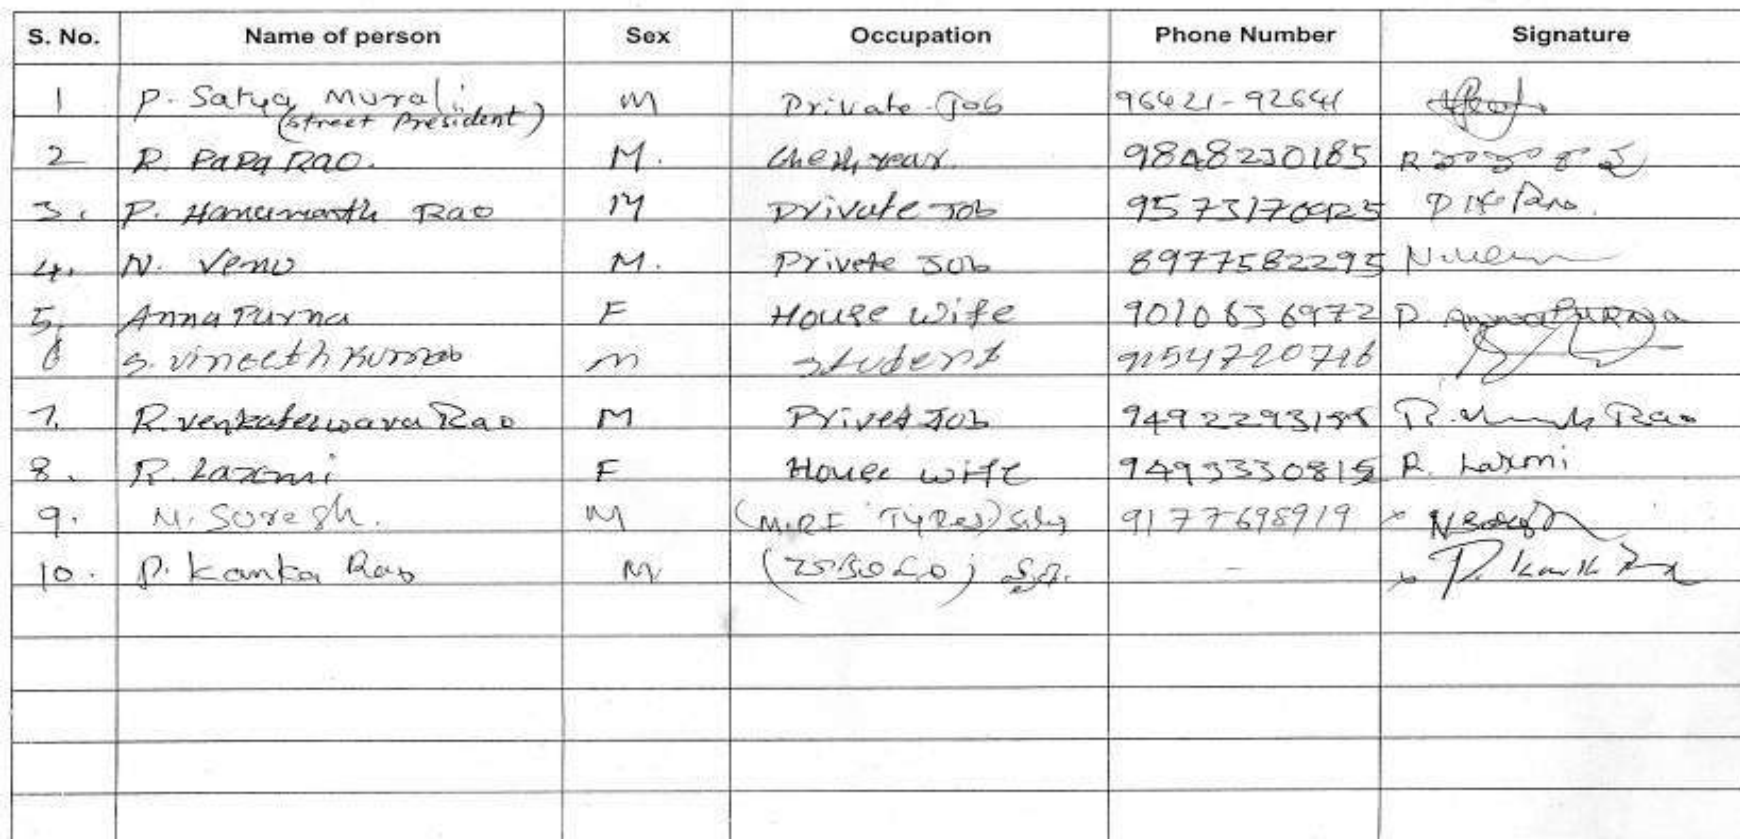 S. No. Name of person Sex Occupation Phone Number Signature
1 P. Satya Murali M Private Job 96421-92641
(street President)
2 R. PaPa RAO. M. 9848230185 R
3. P. Hanumanth Rao M Private Job 9573170925
4. N. Venu M. Privete Job 8977582295 N.
5. Anna Purna F House Wife 9010636972 D. Annapurna
6 S. Vineeth Kumar M Student 9154720716
7. R. Venkateswara Rao M Prived Job R. Rao
8. R. Laxmi F House Wife 9493330815 R. Laxmi
9. N. Suresh. M (M.R.F TYRes) 9177698919
10. P. Kanka Rao M - P.